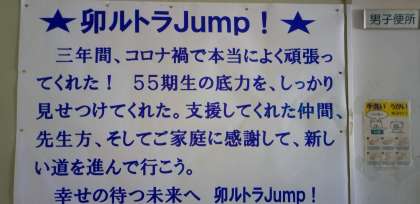 ★卯ルトラJump！★
三年間、コロナ禍で本当によく頑張っ
てくれた！ 55期生の底力を、しっかり
見せつけてくれた。支援してくれた仲間、
先生方、そしてご家庭に感謝して、新し
い道を進んで行こう。
幸せの待つ未来へ 卯ルトラJump！
男子便所
手洗い うがい